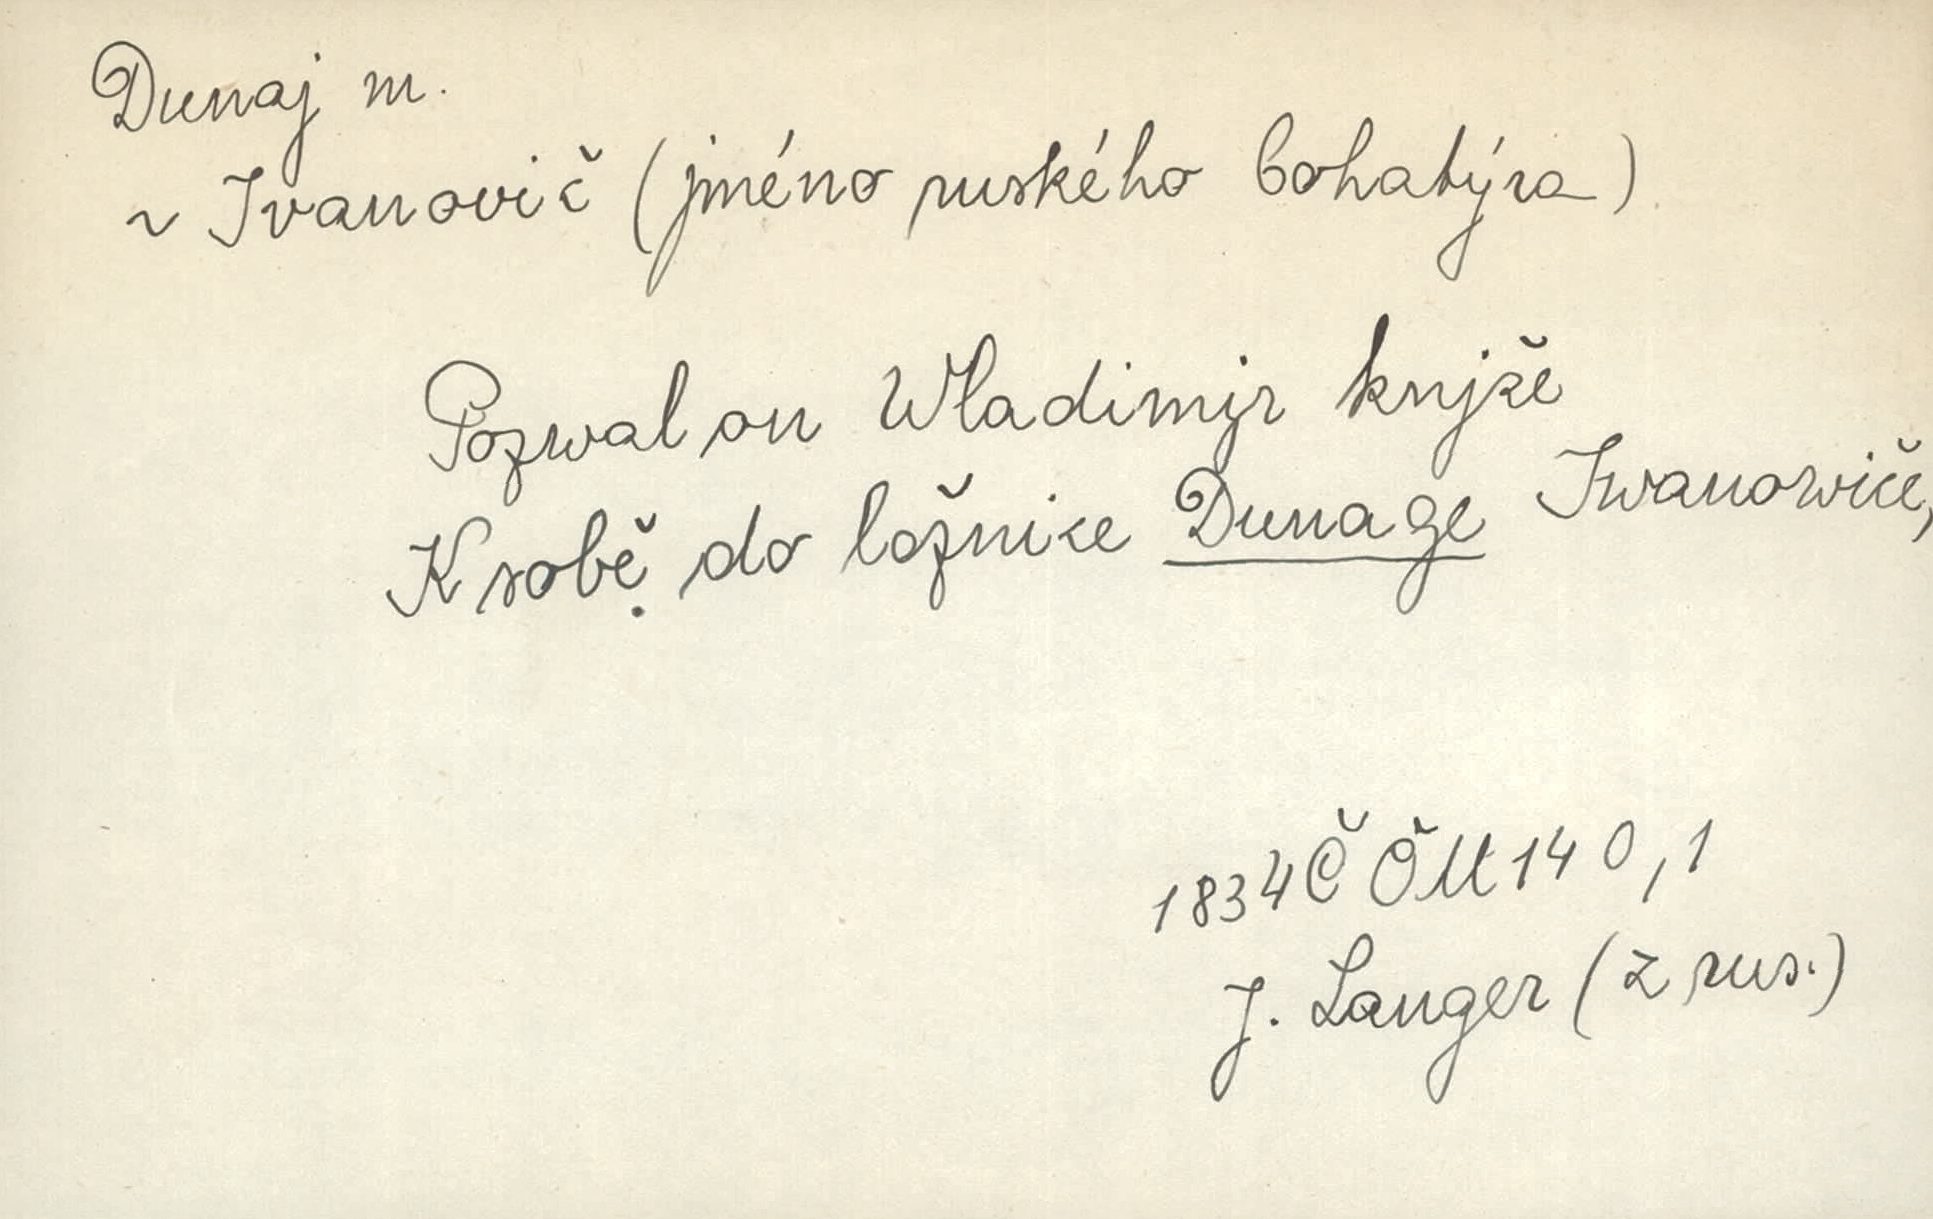 Dunaj m.
~ Ivanovič (jméno ruského bohatýra)
Pozwal on Wladimjr knjže
K sobě do ložnice Dunage Iwanowiče,
1834 Č ČM 140,1
J. Langer (z rus.)